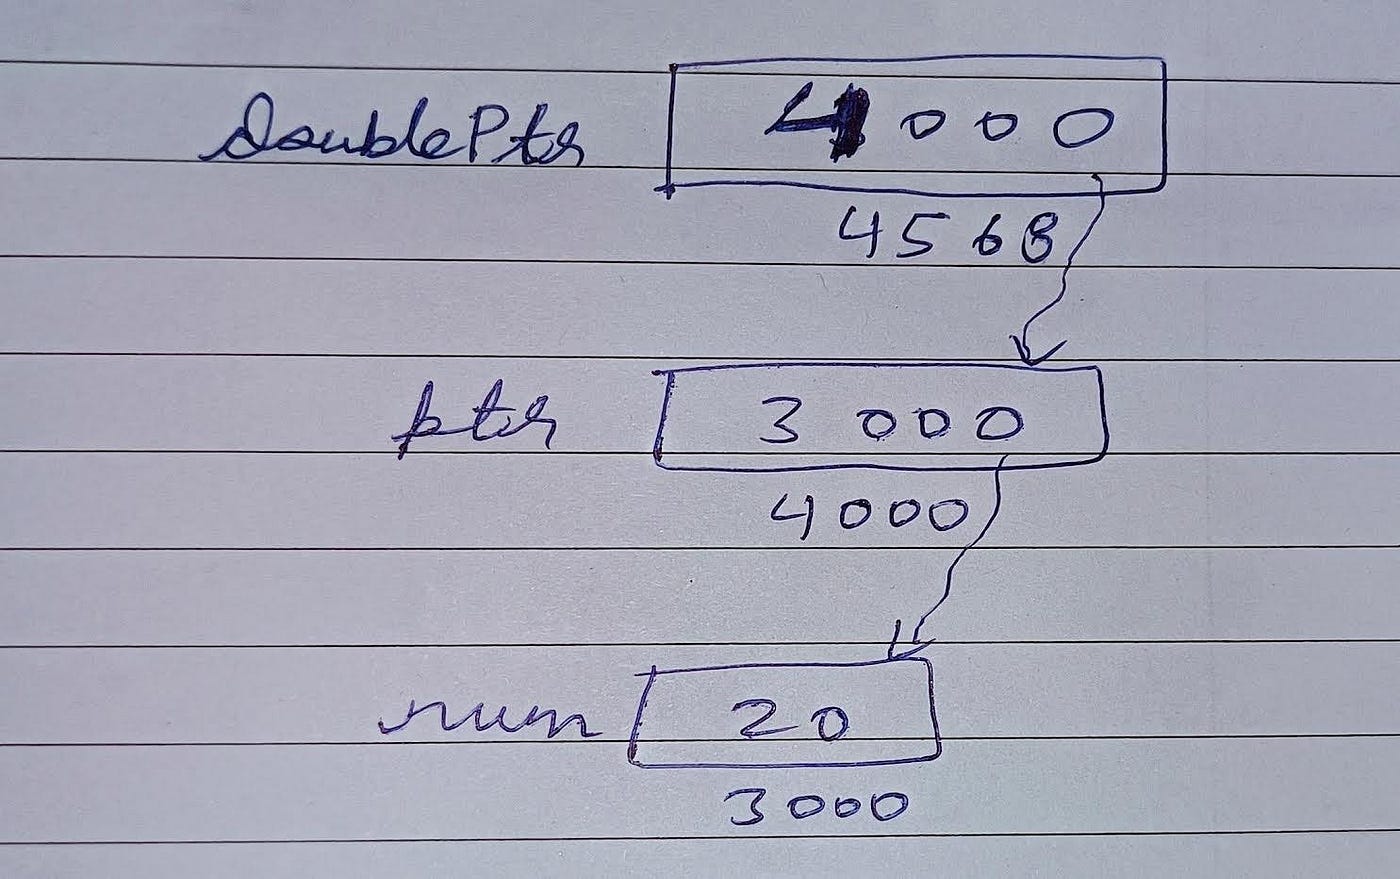 doublePtr 4000
4568
ptr 3000
4000
num 20
3000